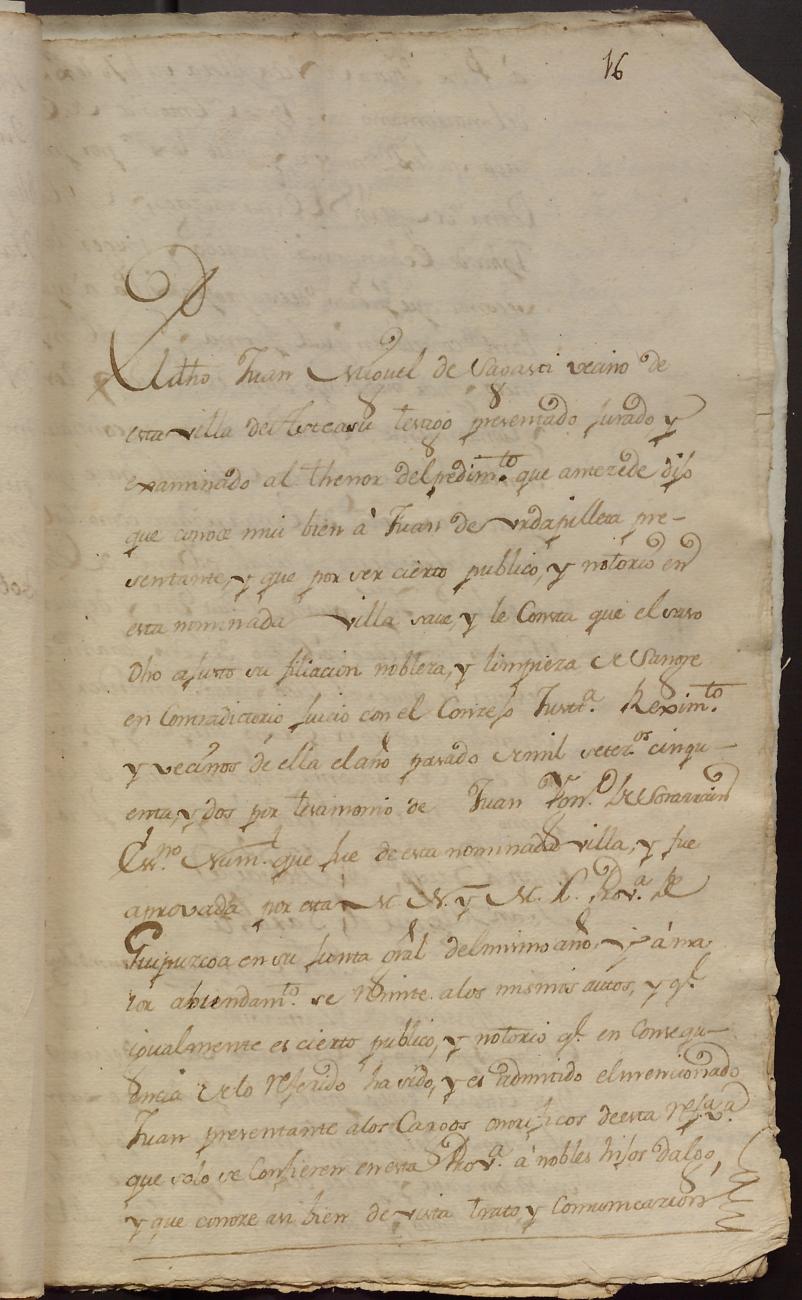 16
El dho Juan Miguel de Sagasti vecino de
esta villa de Asteasu testigo presentado jurado y
examinado al thenor del pedim.to que antezede dijo
que conoce mui bien à Juan de Urdapilleta pre-
sentante, y que por ser cierto publico, y notorio en
esta nominada villa save, y le Consta que el suso
dho ajusto su filiacion nobleza, y limpieza de Sangre
en Contradictorio juicio con el Conzejo Justt.a Reximto
y vecinos de ella el año pasado de mil setez.os cinqu-
enta, y dos por testimonio de Juan Bon.a de Sorarrain
Ess.no Num.l que fue de esta nominada villa, y fue
aprovada por esta M. N. y M. L. Prov.a de
Guipuzcoa en su junta gral del mismo año, y à ma
ior abundam.to se remite a los mismos autos, y q.e
igualmente es cierto publico, y notorio q.e en Consequ-
encia de lo referido ha sido, y es admitido el mencionado
Juan presentante a los Cargos onorificos de esta
que solo se Confieren en esta Prov.a à nobles hijos dalgo,
y que conoze asi bien de vista trato, y Comunicazion